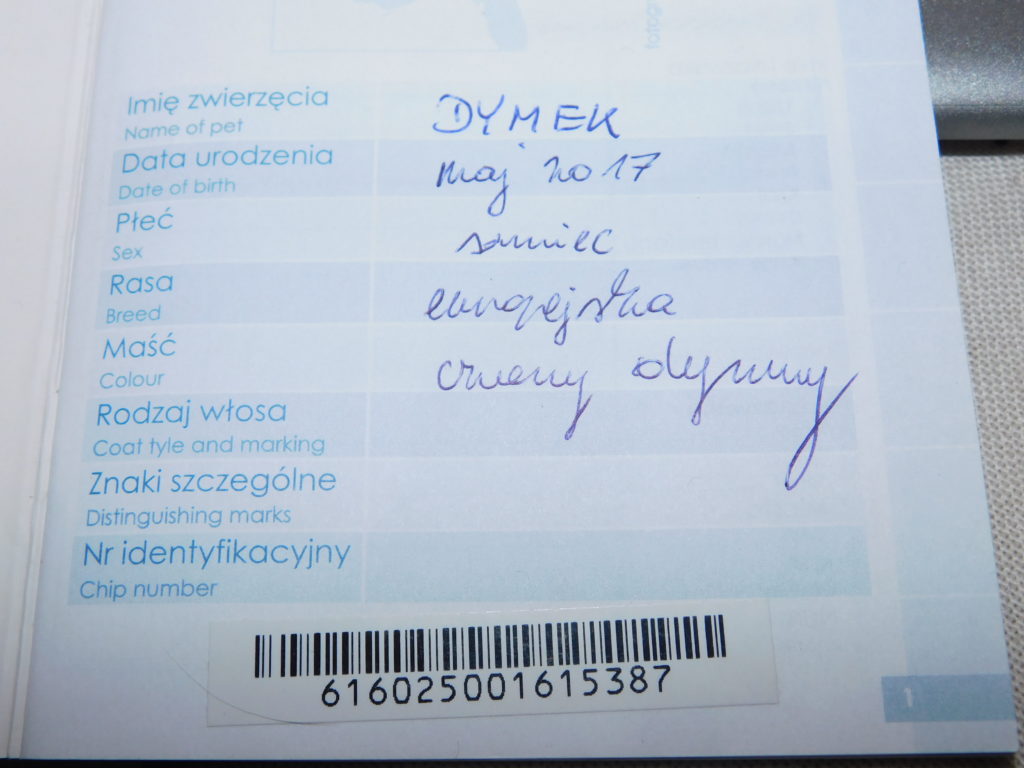 Imię zwierzęcia DYMEK
Name of pet
Data urodzenia maj 2017
Date of birth
Płeć samiec
Sex
Rasa europejska
Breed
Maść czarny dymny
Colour
Rodzaj włosa
Coat tyle and marking
Znaki szczególne
Distinguishing marks
Nr identyfikacyjny
Chip number
616025001615387
1